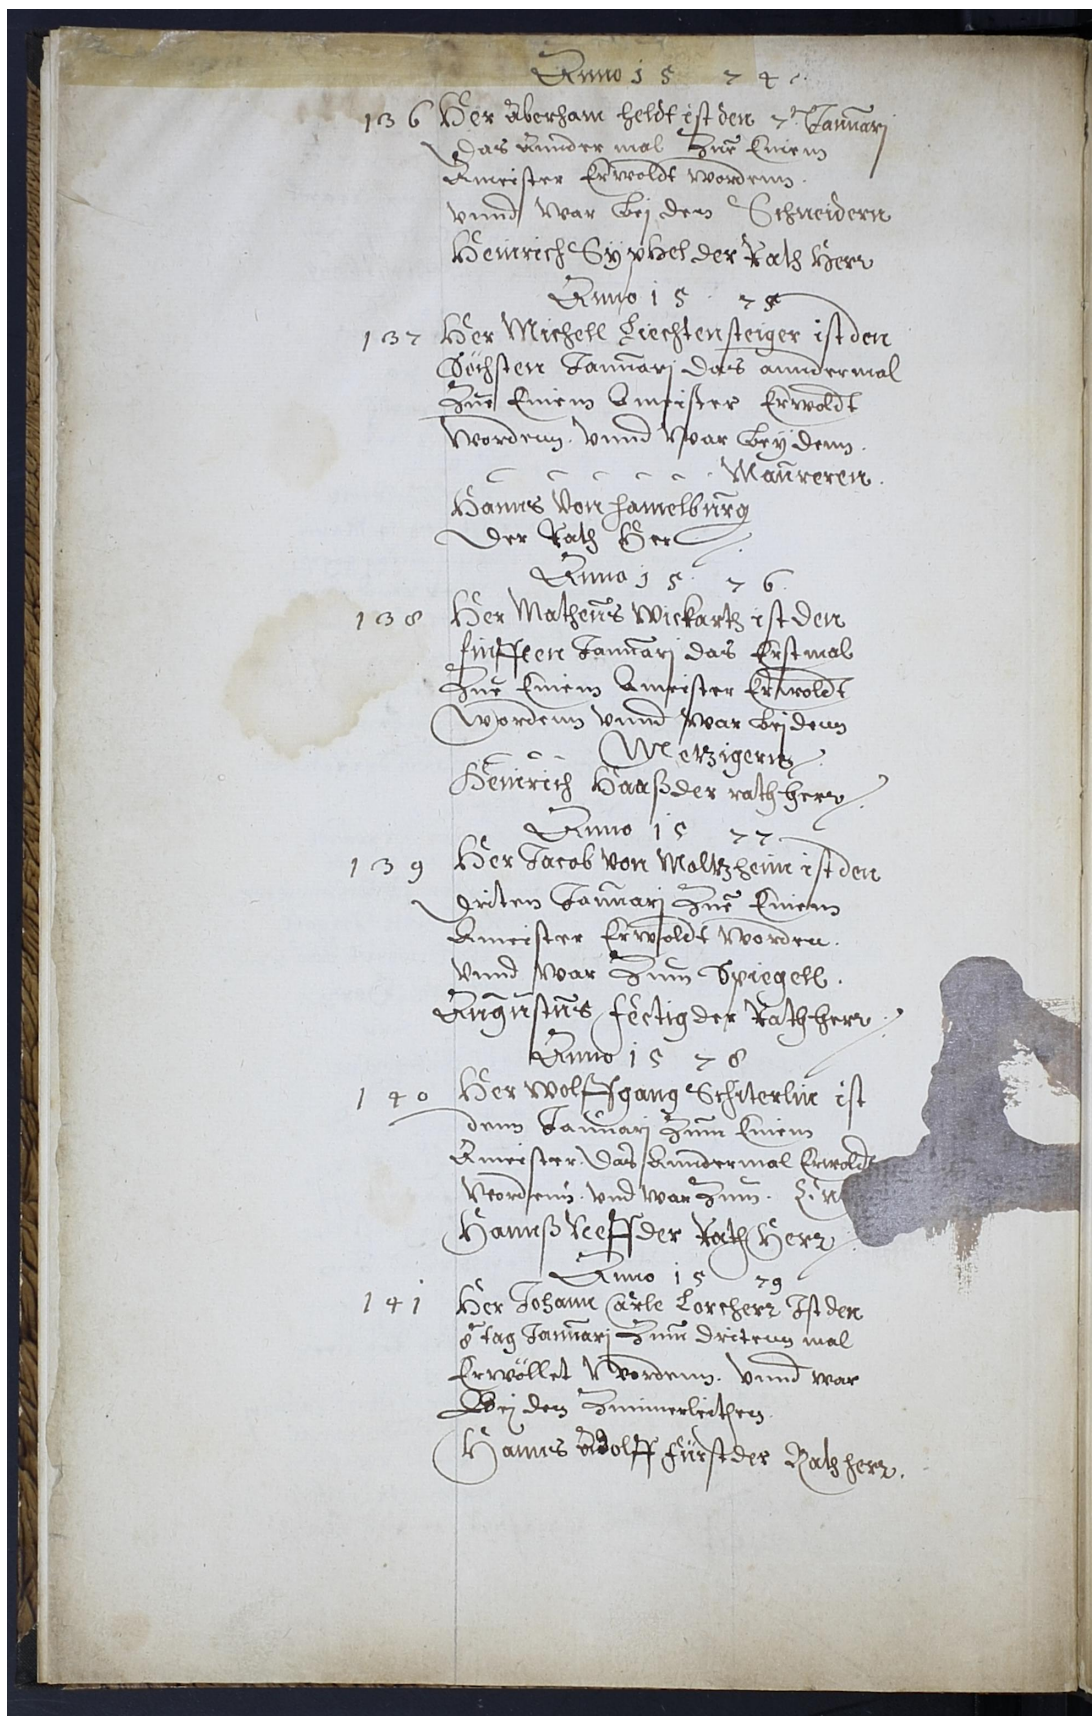 Anno 15 74.
136 Her Aberham heldt ist den 7t Januarj
das Annder mal Zue Einem
Ameister Erwoldt wordenn.
vnnd war bej den Schneidern
Heinrich Syphel der Rath Herr
Anno 15 75
137 Her Michell Liechtensteiger ist den
Söchsten Januarj das anndermal
Zue Einem Ameister Erwoldt
wordenn. vnnd war beÿ denn.
Maureren.
Hanns von hamelburg
der Rath Her
Anno 15 76
138 Her Matheus Wickarth ist den
finfften Januarj das Erst mal
Zue Einem Ameister Erwoldt
wordenn vnnd war bej denn
Metzigern.
Heinrich Haaß der rath herr.
Anno 15 77
139 Her Jacob von Moltzheim ist den
driten Januarj Zue Einem
Ameister Erwoldt worden.
vnnd war Zum Spiegell.
Augustus fectig der Rath herr
Anno 15 78
140 Her Wolffgang Schiterlin ist
denn Januarj Zum Einem
Ameister. das Anndermal Erwoldt
wordenn. vnd war Zum.
Hannß Neff der Rath Herr
Anno 15 79
141 Her Johann Carle Lorcherr Ist den
8t tag Januarj Zum dritenn mal
Erwöllet wordenn. vnnd war
Bej den Zimmerleithen.
Hanns Adolff fürst der Rath herr.